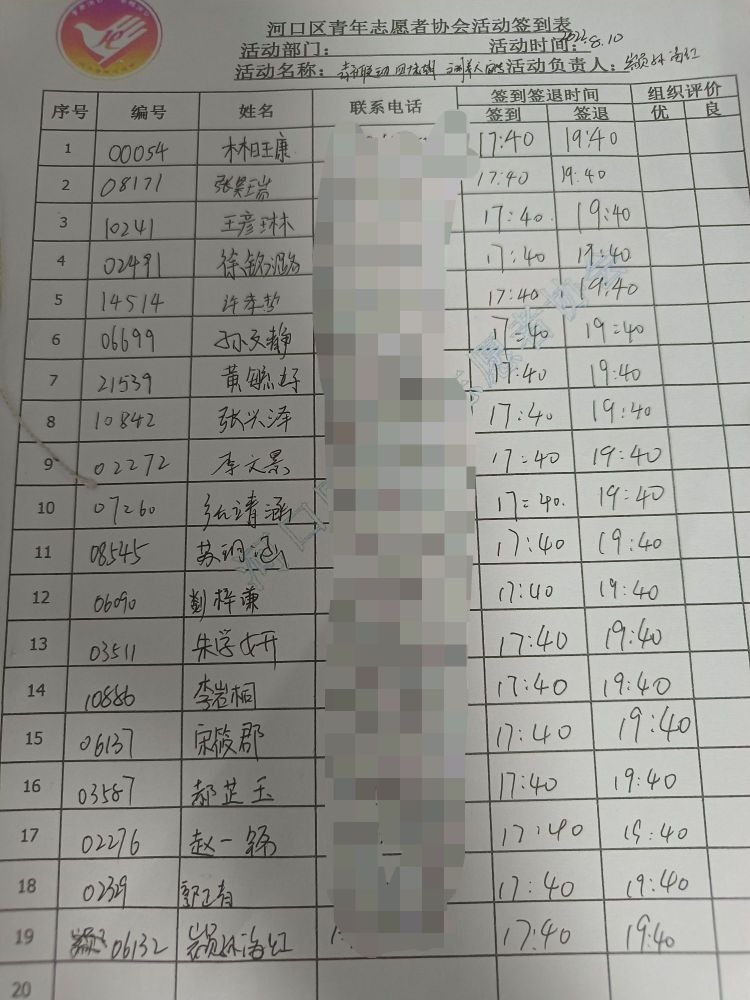 河口区青年志愿者协会活动签到表
活动部门: 活动时间: 8.10
活动名称: 活动负责人:
序号 编号 姓名 联系电话 签到签退时间 组织评价
签到 签退 优 良
1 00054 林钰康 17:40 19:40
2 08171 张昊瑞 17:40 19:40
3 10241 王彦琳 17:40 19:40
4 02491 徐铭潞 17:40 19:40
5 14514 许孝哲 17:40 19:40
6 06699 孙文静 17:40 19:40
7 21539 黄毓婷 17:40 19:40
8 10842 张兴泽 17:40 19:40
9 02272 李文景 17:40 19:40
10 07260 张靖涵 17:40 19:40
11 08545 苏涵 17:40 19:40
12 06090 刘梓谦 17:40 19:40
13 03511 朱学妍 17:40 19:40
14 10886 李岩桐 17:40 19:40
15 06137 宋筱郡 17:40 19:40
16 03587 郝芷玉 17:40 19:40
17 02276 赵一 17:40 19:40
18 0239 17:40 19:40
19 06132 17:40 19:40
20